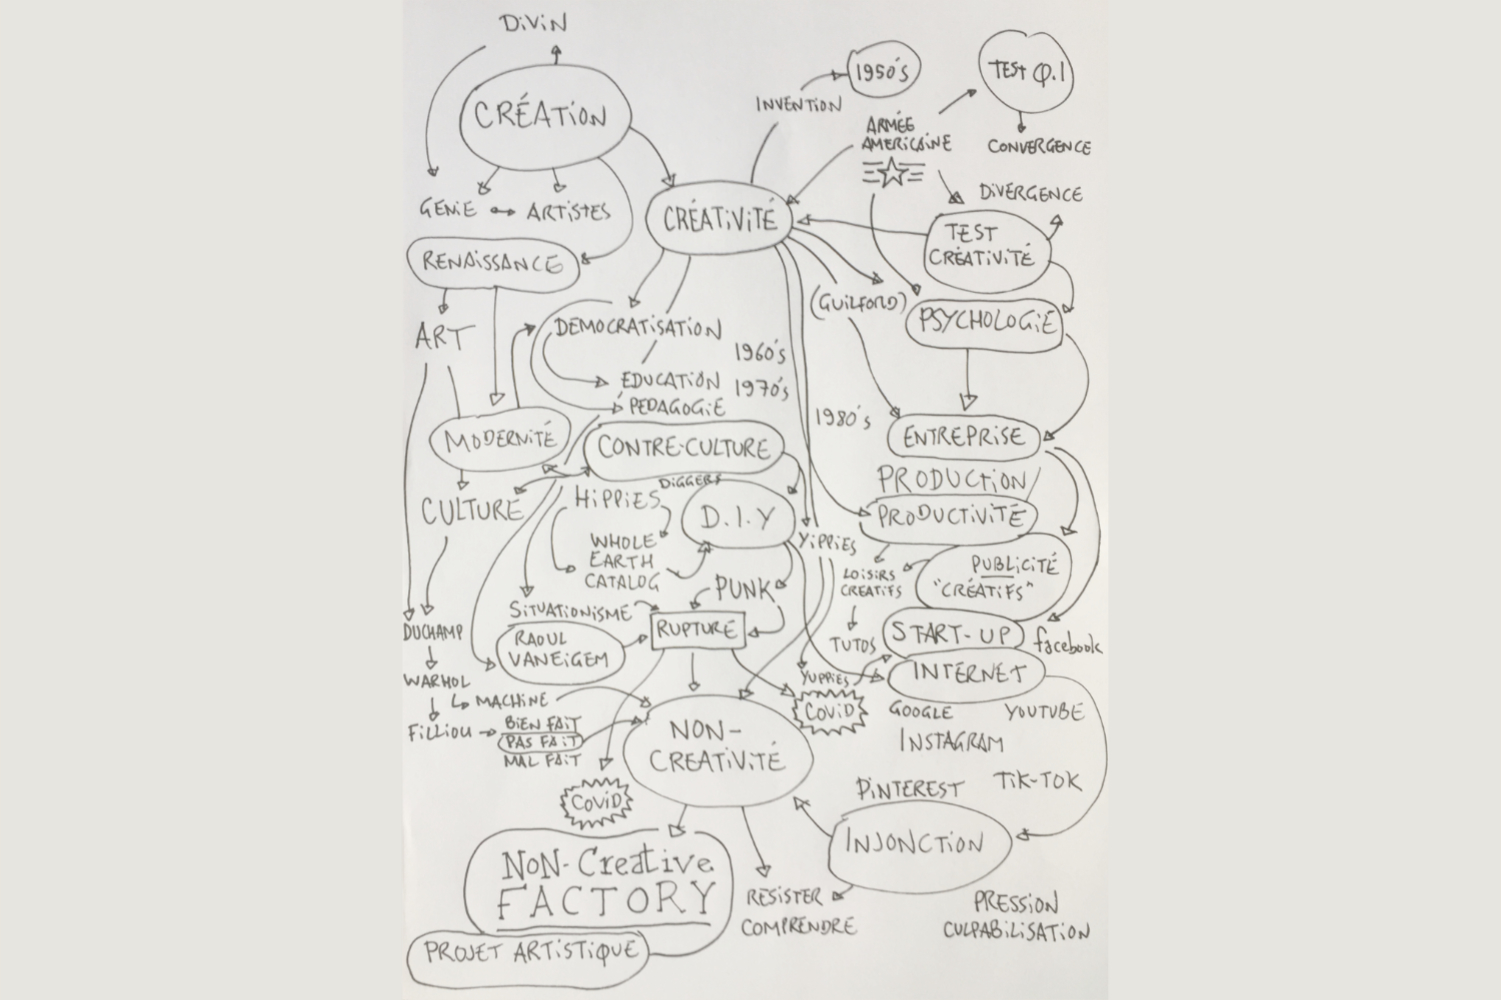 DiViN
CRÉATION
GÉNiE
ARTISTES
RENAiSSANCE
ART
MODERNiTÉ
CULTURE
DUCHAMP
WARHOL
MACHiNE
FiLLiOU
BiEN FAiT
PAS FAiT
MAL FAiT
1950's
INVENTION
TEST Q.I
CONVERGENCE
ARMÉE
AMERiCAiNE
DiVERGENCE
CRÉATiViTÉ
TEST
CRÉATiViTÉ
(GUiLFORD)
PSYCHOLOGiE
DEMOCRATiSATiON
1960's
EDUCATiON
1970's
PEDAGOGiE
1980's
CONTRE-CULTURE
DiGGERS
HiPPiES
D.I.Y
YiPPiES
WHOLE
EARTH
CATALOG
PUNK
SiTUATiONiSME
RUPTURE
RAOUL
VANEiGEM
ENTREPRiSE
PRODUCTiON
PRODUCTiViTÉ
PUBLiCiTÉ
"CRÉATiFS"
LOiSiRS
CREATiFS
TUTOS
START-UP
facebook
YUPPiES
INTERNET
COViD
GOOGLE
YOUTUBE
INSTAGRAM
PiNTEREST
TiK-TOK
NON-
CREATiViTÉ
COViD
INJONCTiON
NoN-Creative
FACTORY
PROJET ARTiSTiQUE
RESiSTER
COMPRENDRE
PRESSiON
CULPABiLiSATiON